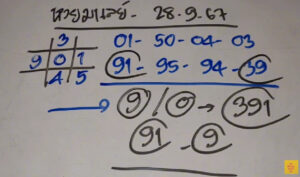 หวยมาเลย์ - 28-9-67
3
9 0 1
4 5
01-50-04-03
91-95-94-39
9/0 → 391
91-9